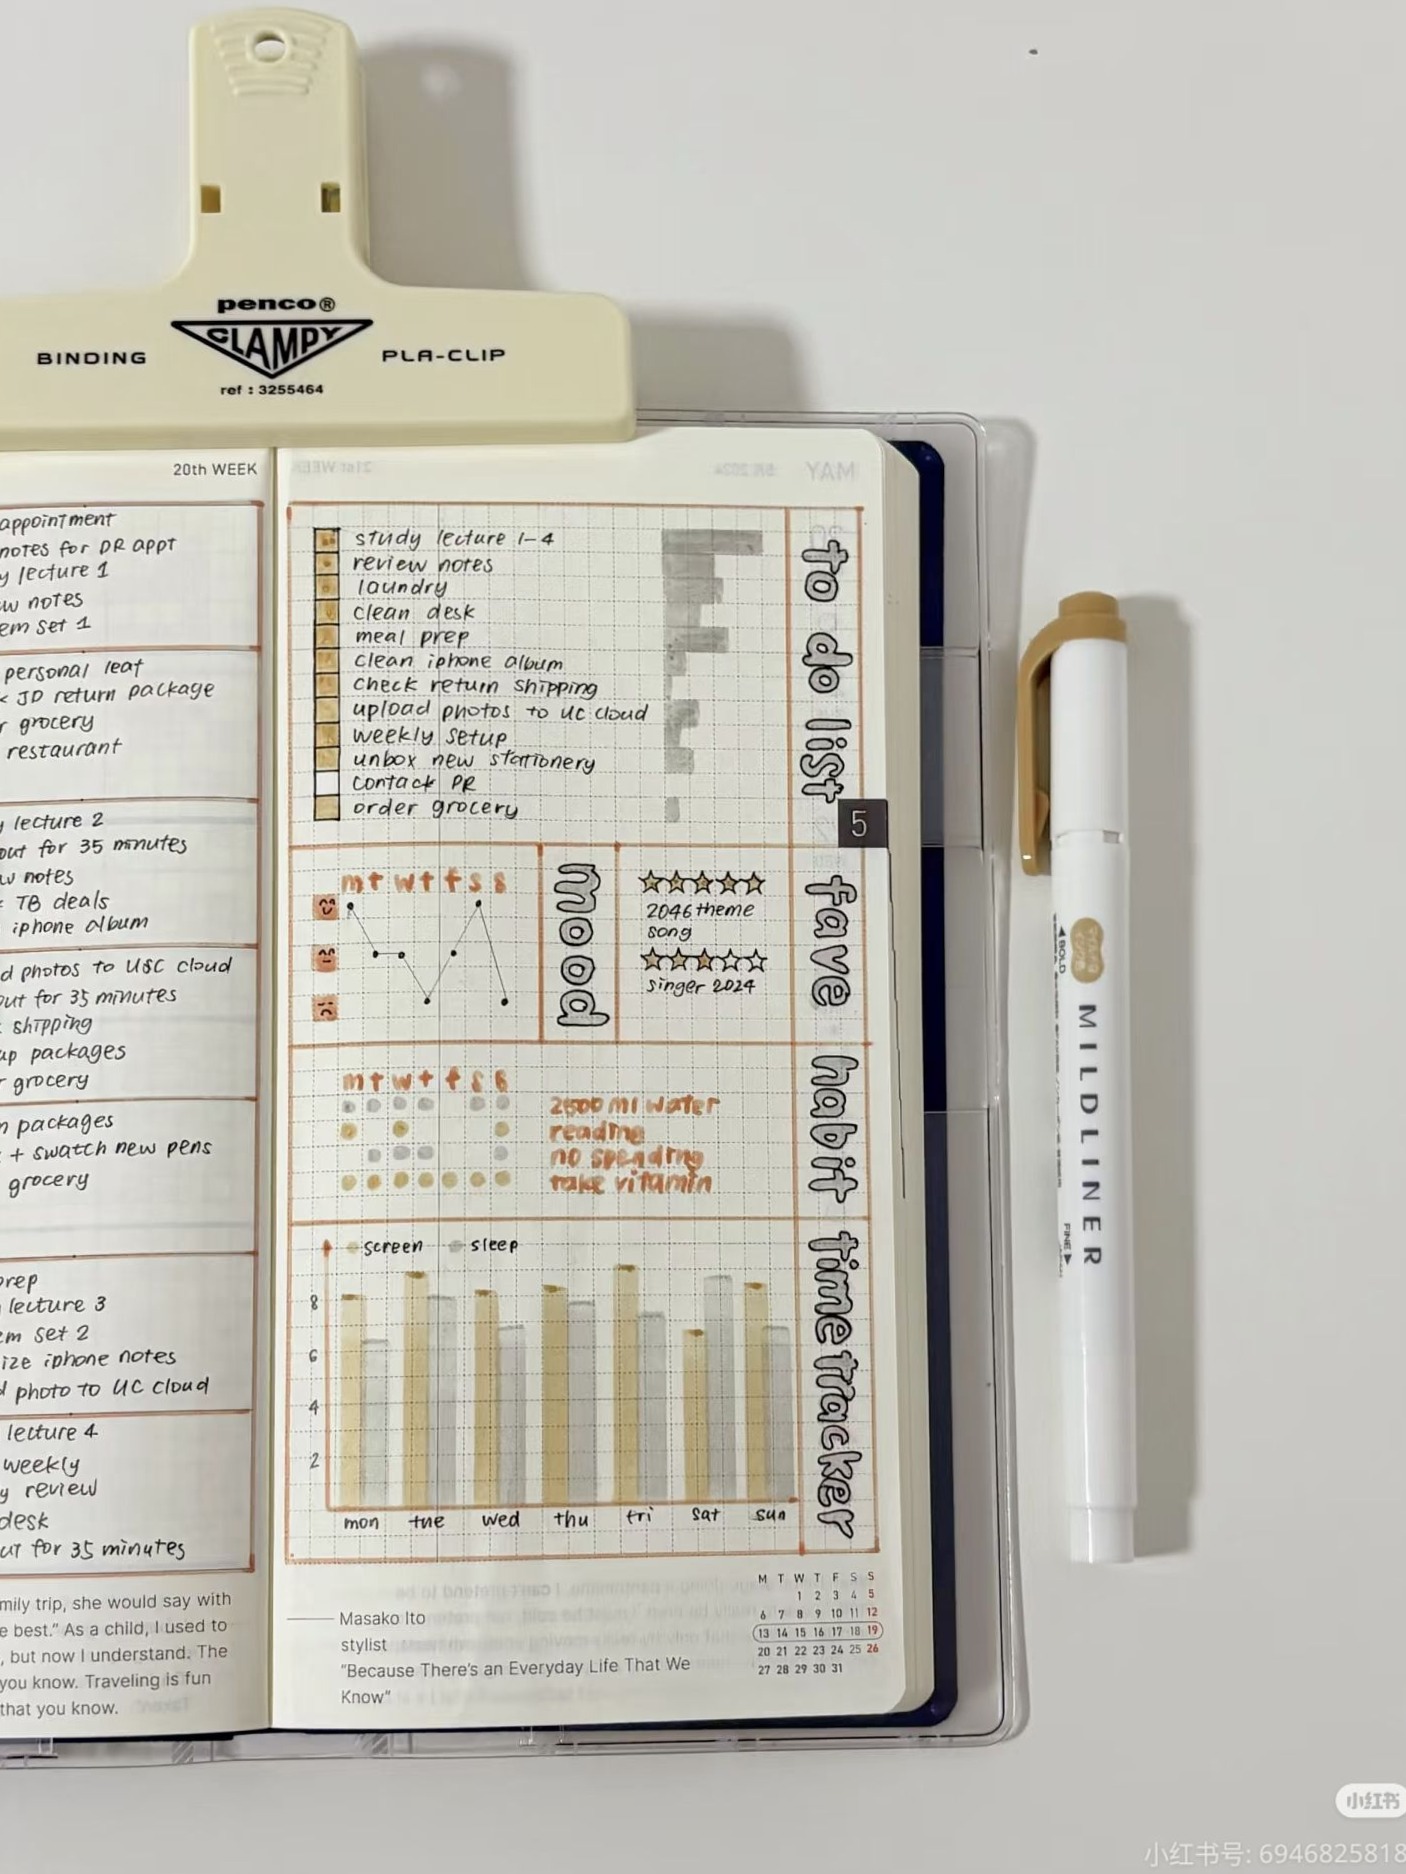 penco®
CLAMPY
BINDING
PLA-CLIP
ref : 3255464
20th WEEK
appointment
notes for DR appt
y lecture 1
w notes
em set 1
personal leaf
JD return package
r grocery
restaurant
y lecture 2
out for 35 minutes
w notes
TB deals
iphone album
d photos to USC cloud
out for 35 minutes
shipping
up packages
r grocery
n packages
+ swatch new pens
grocery
prep
lecture 3
em set 2
ize iphone notes
d photo to UC cloud
lecture 4
weekly
y review
desk
out for 35 minutes
mily trip, she would say with
e best." As a child, I used to
, but now I understand. The
you know. Traveling is fun
that you know.
MAY
study lecture 1-4
review notes
laundry
clean desk
meal prep
clean iphone album
check return shipping
upload photos to UC cloud
weekly setup
unbox new stationery
contack PR
order grocery
to do list
5
m t w t f s s
mood
2046 theme
song
singer 2024
fave
m t w t f s s
2500 ml water
reading
no spending
take vitamin
habit
screen sleep
8
6
4
2
mon tue wed thu fri sat sun
time tracker
Masako Ito
stylist
"Because There's an Everyday Life That We
Know"
M T W T F S S
1 2 3 4 5
6 7 8 9 10 11 12
13 14 15 16 17 18 19
20 21 22 23 24 25 26
27 28 29 30 31
◀BOLD
MILDLINER
FINE▶
小红书
小红书号: 6946825818